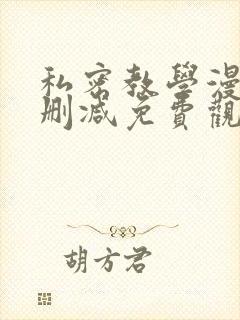 私密教學漫
删減免費觀
胡方君